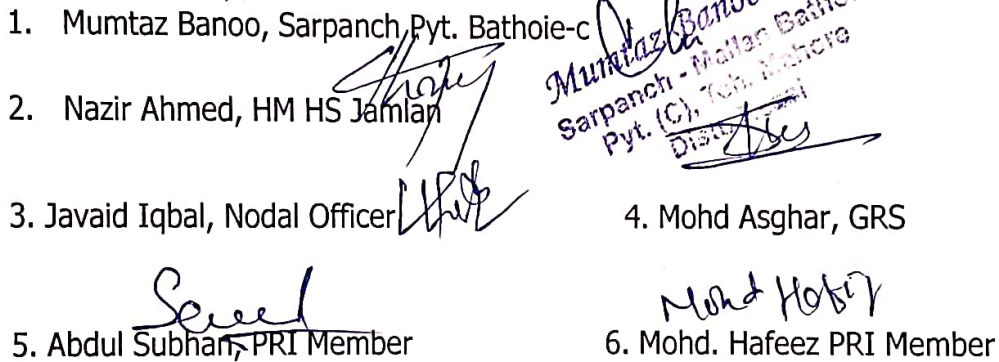 1. Mumtaz Banoo, Sarpanch, Pyt. Bathoie-c
Mumtaz Banoo
Sarpanch - Mallan
Pyt. (C), Teh. Mahore
2. Nazir Ahmed, HM HS Jamlan
3. Javaid Iqbal, Nodal Officer
4. Mohd Asghar, GRS
Mohd Hafiz
5. Abdul Subhan, PRI Member
6. Mohd. Hafeez PRI Member